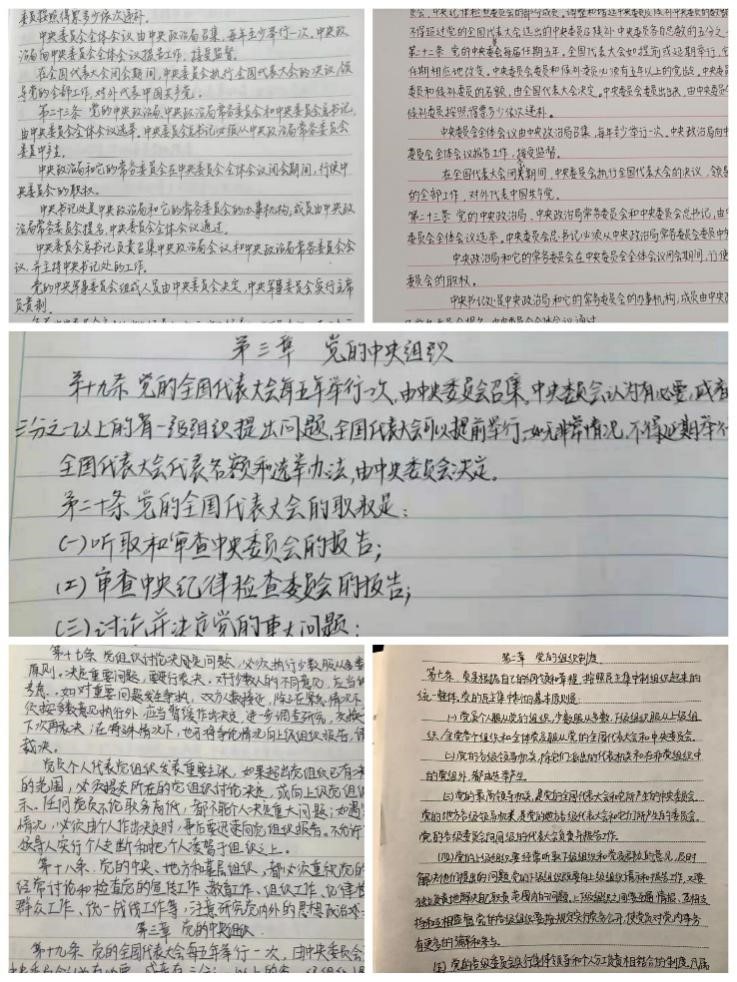 委员按照得票多少依次递补。
中央委员会全体会议由中央政治局召集,每年至少举行一次。中央政
治局向中央委员会全体会议报告工作,接受监督。
在全国代表大会闭会期间,中央委员会执行全国代表大会的决议,领
导党的全部工作,对外代表中国共产党。
第二十三条 党的中央政治局、中央政治局常务委员会和中央委员会总书记,
由中央委员会全体会议选举。中央委员会总书记必须从中央政治局常务委员会
委员中产生。
中央政治局和它的常务委员会在中央委员会全体会议闭会期间,行使中
央委员会的职权。
中央书记处是中央政治局和它的常务委员会的办事机构,成员由中央政
治局常务委员会提名,中央委员会全体会议通过。
中央委员会总书记负责召集中央政治局会议和中央政治局常务委员会会
议,并主持中央书记处的工作。
党的中央军事委员会组成人员由中央委员会决定,中央军事委员会实行主席
负责制。
不得超过党的全国代表大会选出的中央委员及候补中央委员各自总数的五分之一
第二十二条 党的中央委员会每届任期五年。全国代表大会如提前或延期举行,它
任期相应地改变。中央委员会委员和候补委员必须有五年以上的党龄。中央委员
委员和候补委员的名额,由全国代表大会决定。中央委员会委员出缺,由中央委员
候补委员按照得票多少依次递补。
中央委员会全体会议由中央政治局召集,每年至少举行一次。中央政治局向中
委员会全体会议报告工作,接受监督。
在全国代表大会闭会期间,中央委员会执行全国代表大会的决议,领导
的全部工作,对外代表中国共产党。
第二十三条 党的中央政治局、中央政治局常务委员会和中央委员会总书记,由中
委员会全体会议选举。中央委员会总书记必须从中央政治局常务委员会委员中
中央政治局和它的常务委员会在中央委员会全体会议闭会期间,行使
委员会的职权。
中央书记处是中央政治局和它的常务委员会的办事机构,成员由中央政
第三章 党的中央组织
第十九条 党的全国代表大会每五年举行一次,由中央委员会召集。中央委员会认为有必要,或者
三分之一以上的省一级组织提出问题,全国代表大会可以提前举行;如无非常情况,不得延期举行
全国代表大会代表名额和选举办法,由中央委员会决定。
第二十条 党的全国代表大会的职权是:
(一)听取和审查中央委员会的报告;
(二)审查中央纪律检查委员会的报告;
(三)讨论并决定党的重大问题;
第十七条 党组织讨论决定问题,必须执行少数服从多数
原则。决定重要问题,要进行表决。对于少数人的不同意见,应当
考虑。如对重要问题发生争执,双方人数接近,除了在紧急情况下
下次再表决;在特殊情况下,也可将争论情况向上级组织报告,请
裁决。
党员个人代表党组织发表重要主张,如果超出党组织已有
的范围,必须提交所在的党组织讨论决定,或向上级党组织
示。任何党员不论职务高低,都不能个人决定重大问题;如遇
情况,必须由个人作出决定时,事后要迅速向党组织报告。不允许
领导人实行个人专断和把个人凌驾于组织之上。
第十八条 党的中央、地方和基层组织,都必须重视党的
经常讨论和检查党的宣传工作、教育工作、组织工作、纪律检
群众工作、统一战线工作等,注意研究党内外的思想政治状
第三章 党的中央组织
第十九条 党的全国代表大会每五年举行一次,由中央委员会
第二章 党的组织制度
统一整体。党的民主集中制的基本原则是:
(一)党员个人服从党的组织,少数服从多数,下级组织服从上级组
织,全党各个组织和全体党员服从党的全国代表大会和中央委员会。
(二)党的各级领导机关,除它们派出的代表机关和在非党组织中
的党组外,都由选举产生。
(三)党的最高领导机关,是党的全国代表大会和它所产生的中央委员会。
党的地方各级领导机关,是党的地方各级代表大会和它们所产生的委员会。
党的各级委员会向同级的代表大会负责并报告工作。
(四)党的上级组织要经常听取下级组织和党员群众的意见,及时
解决他们提出的问题。党的下级组织既要向上级组织请示和报告工作,又要